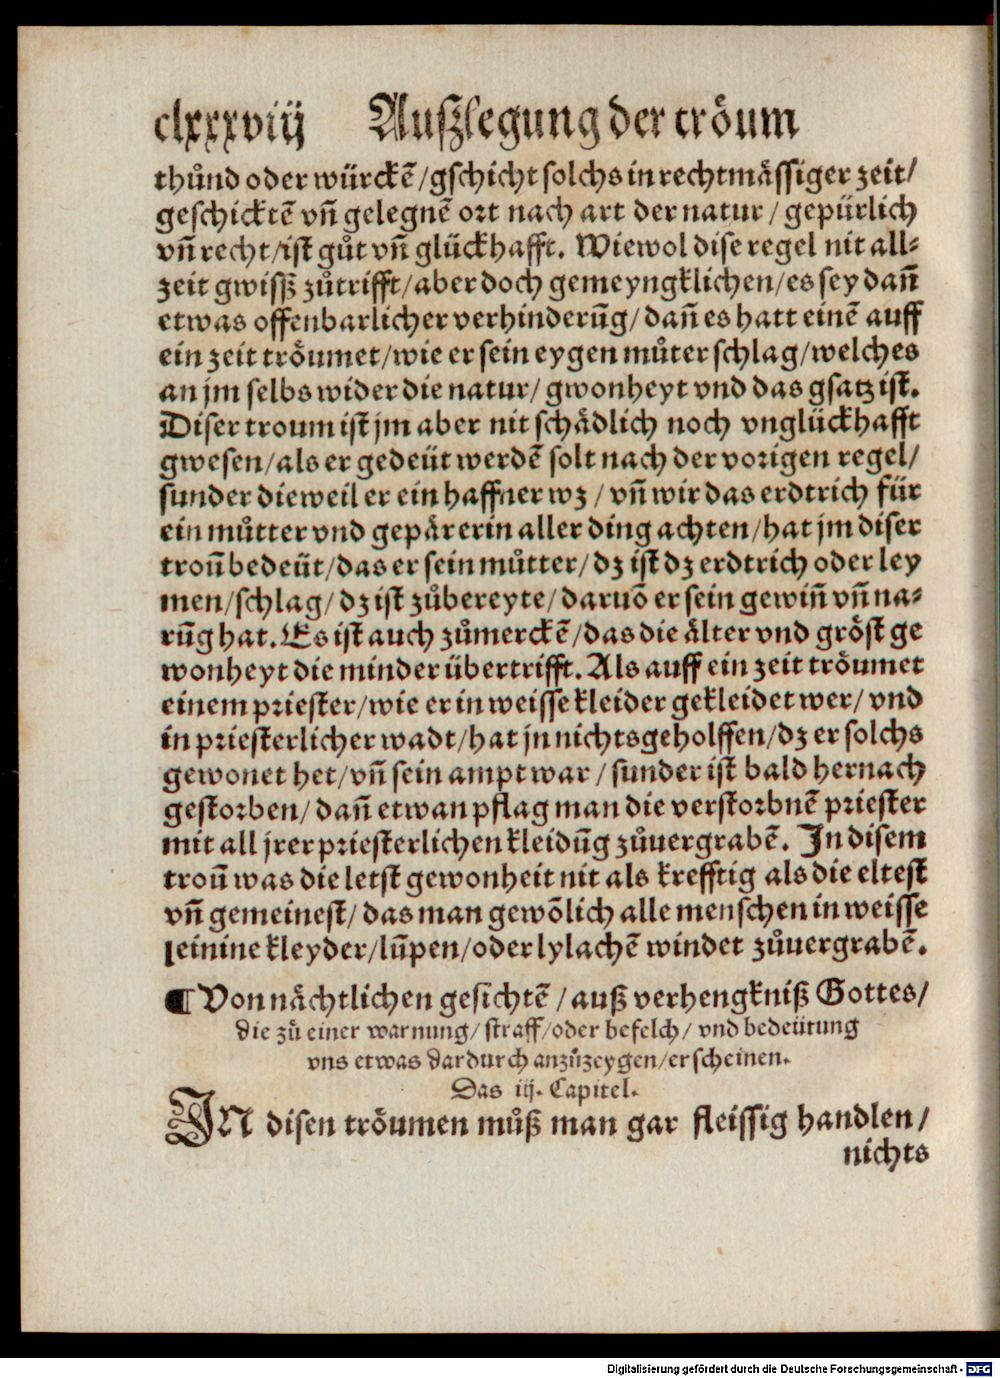 clxxxviij Außlegung der tröum
thůnd oder würckẽ/gschicht solchs in rechtmässiger zeit/
geschicktẽ vñ gelegnẽ ort nach art der natur / gepürlich
vñ recht/ist gůt vñ glückhafft. Wiewol dise regel nit all⸗
zeit gwisß zůtrifft/aber doch gemeyngklichen/es sey dañ
etwas offenbarlicher verhinderũg/dañ es hatt einẽ auff
ein zeit tröumet/wie er sein eygen můter schlag/welches
an jm selbs wider die natur/ gwonheyt vnd das gsatz ist.
Diser troum ist jm aber nit schädlich noch vnglückhafft
gwesen/als er gedeüt werdẽ solt nach der vorigen regel/
sunder dieweil er ein haffner wz / vñ wir das erdtrich für
ein můtter vnd gepärerin aller ding achten/hat jm diser
troũ bedeüt/das er sein můtter/dz ist dz erdtrich oder ley
men/schlag/dz ist zůbereyte/daruõ er sein gewiñ vñ na⸗
rũg hat. Es ist auch zůmerckẽ/das die älter vnd gröst ge
wonheyt die minder übertrifft. Als auff ein zeit tröumet
einem priester/wie er in weisse kleider gekleidet wer/ vnd
in priesterlicher wadt/hat jn nichts geholffen/dz er solchs
gewonet het/vñ sein ampt war / sunder ist bald hernach
gestorben/ dañ etwan pflag man die verstorbnẽ priester
mit all jrer priesterlichen kleidũg zůuergrabẽ. In disem
troũ was die letst gewonheit nit als krefftig als die eltest
vñ gemeinest/das man gewõlich alle menschen in weisse
leinine kleyder/lũpen/oder lylachẽ windet zůuergrabẽ.
¶ Von nächtlichen gesichtẽ /auß verhengkniß Gottes/
die zů einer warnung/straff/oder befelch/ vnd bedeütung
vns etwas dardurch anzůzeygen/erscheinen.
Das iij. Capitel.
IN disen tröumen můß man gar fleissig handlen/
nichts
Digitalisierung gefördert durch die Deutsche Forschungsgemeinschaft - DFG